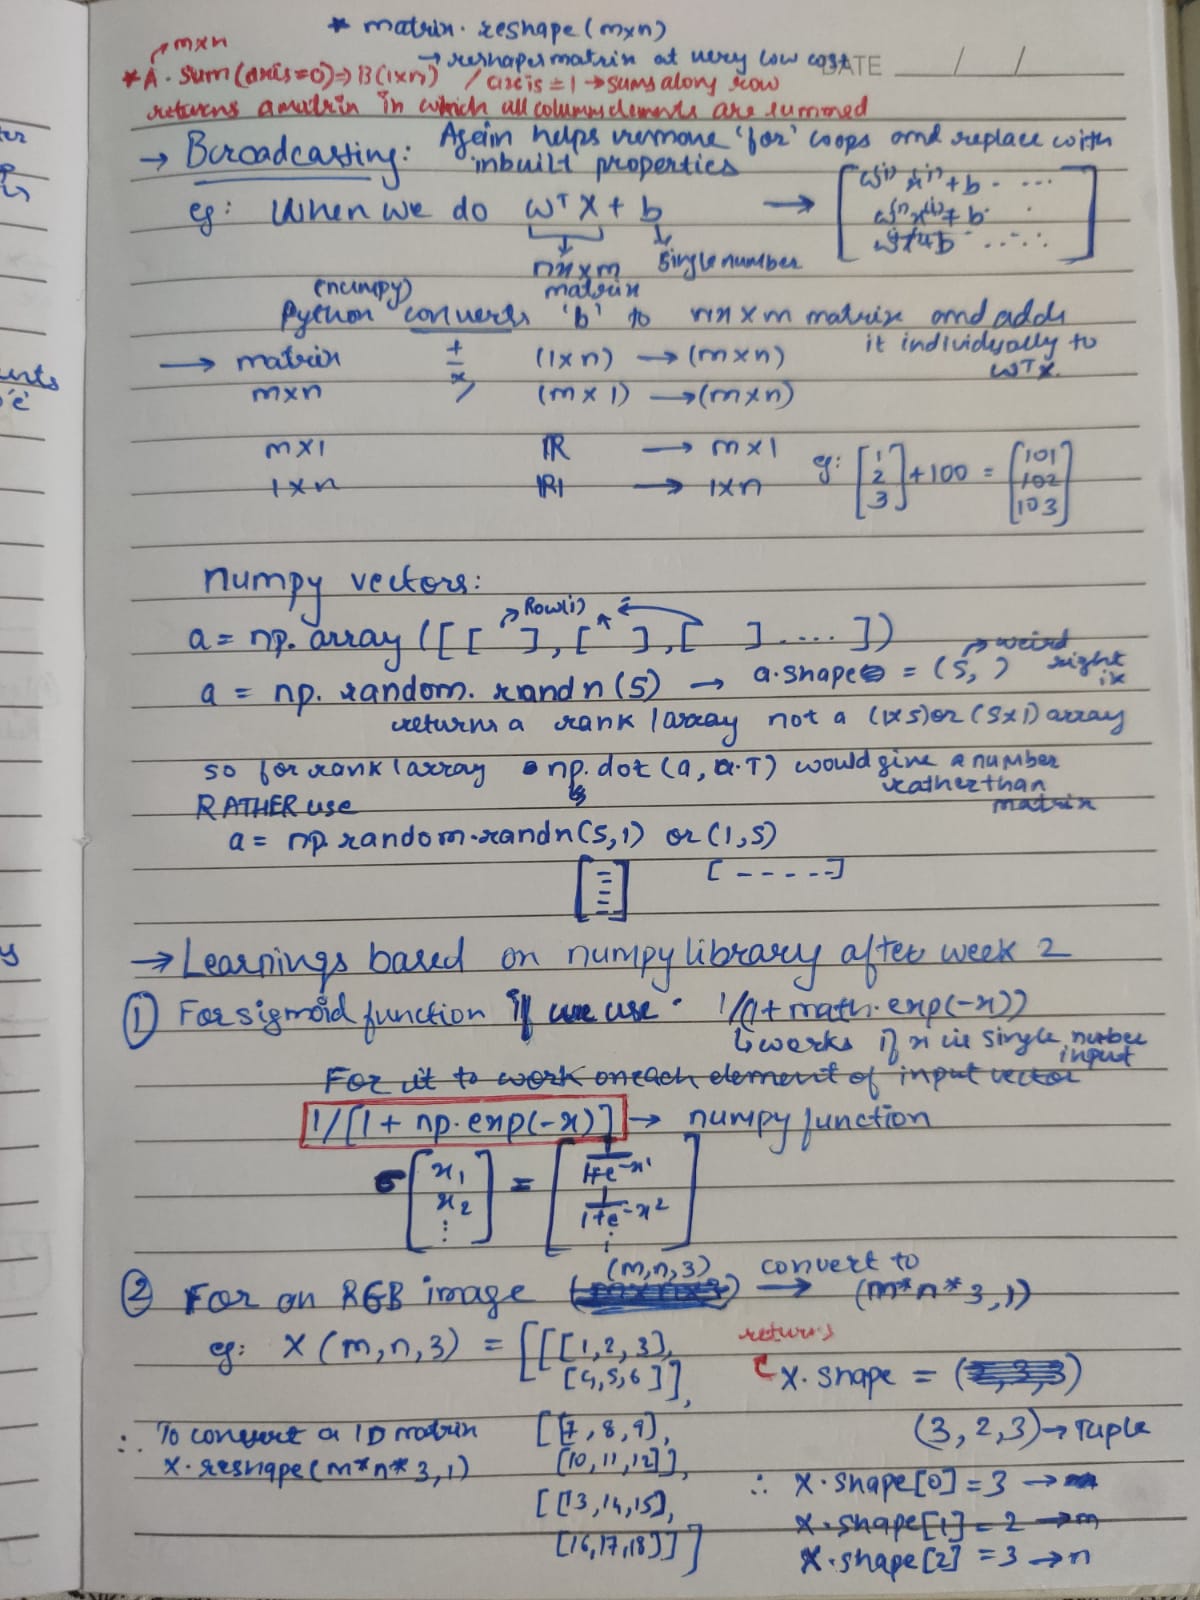 * matrix.reshape(mxn)
→ reshapes matrix at very low cost
DATE / /
→ mxn
* A.sum(axis=0) => B(1xn) / axis = 1 → sums along row
returns a matrix in which all column elements are summed
→ Broadcasting: Again helps remove 'for' loops and replace with
inbuilt properties
eg: When we do wᵀX + b → [ + b . ...
+ b .
+ b ..... ]
nx x m single number
matrix
(numpy)
Python converts 'b' to nx x m matrix and adds
it individually to
wᵀx.
→ matrix + (1xn) → (mxn)
mxn - x / (mx1) → (mxn)
mx1 R → mx1
1xn R → 1xn
eg: [1 2 3] + 100 = [101 102 103]
numpy vectors:
→ Row(i)
a = np.array([[ ], [ ], [ ] .... ])
a = np.random.randn(5) → a.shape = (5, ) → weird
right
returns a rank 1 array not a (1x5) or (5x1) array
so for rank 1 array np.dot(a, a.T) would give a number
rather than
matrix
RATHER use
a = np.random.randn(5,1) or (1,5)
[-----]
→ Learnings based on numpy library after week 2
① For sigmoid function if we use 1/(1+math.exp(-x))
↳ works if x is single number
input
For it to work on each element of input vector
1/[1 + np.exp(-x)] → numpy function
σ [x₁ x₂ ⋮] = [1/1+e^-x1 1/1+e^-x2 ⋮]
② For an RGB image (m,n,3) convert to → (m*n*3,1)
eg: X(m,n,3) = [[[1,2,3],
[4,5,6]],
[[7,8,9],
[10,11,12]],
[[13,14,15],
[16,17,18]]]
∴ To convert a 1D matrix
X.reshape(m*n*3,1)
returns
X.shape =
(3,2,3) → Tuple
∴ X.shape[0] = 3 →
X.shape[1] = 2 → m
X.shape[2] = 3 → n